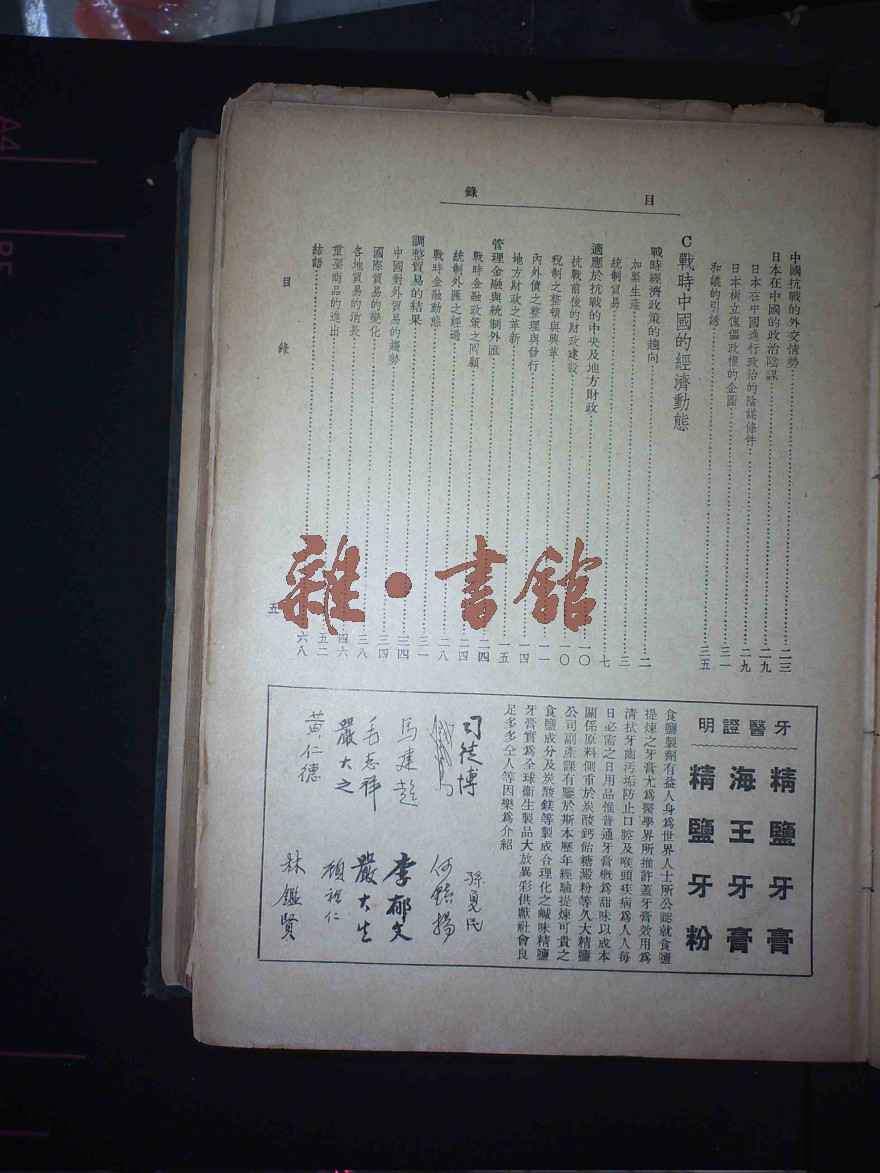 目錄
中國抗戰的外交情勢……二三
日本在中國的政治陰謀……二九
日本在中國進行政治的陰謀條件……二九
日本樹立傀儡政權的企圖……三一
和議的引誘……三五
C 戰時中國的經濟動態
戰時經濟政策的趨向……二
加緊生產……三
統制貿易……七
適應於抗戰的中央及地方財政……一〇
抗戰前後的財政建設……一〇
稅制之整頓與興革……一一
內外債之整理與發行……一四
地方財政之革新……一五
管理金融與統制外匯……二四
戰時金融政策之回顧……二四
統制外匯之經過……二八
戰時金融動態……三一
調整貿易的結果……三四
中國對外貿易的趨勢……三四
國際貿易的變化……三八
各地貿易的消長……四六
重要商品的進出……五二
結語……六八
目錄
五
雜·書館
牙醫證明
精鹽牙膏
海王牙膏
精鹽牙粉
食鹽製劑有益人身為世界人士所公認就食鹽
提煉之牙膏尤為醫學界所推許蓋牙膏效用為
清拭牙齒汚垢防止口腔及喉頭疾病為人人每
日必需之日用品惟普通牙膏概為甜味以成本
關係原料側重於炭酸鈣飴糖澱粉等久大精鹽
公司副產課有鑒於斯本歷年經驗提煉可貴之
食鹽成分及炭酸鎂等製成合理化之鹹味精鹽
牙膏實為全球衞生製品大放異彩供獻社會良
足多多仝人等因樂為介紹
司徒博
孫夏民
馬建彪
李郁文
毛志祥
嚴大生
嚴大之
顧祖仁
黃仁德
林鑑賢